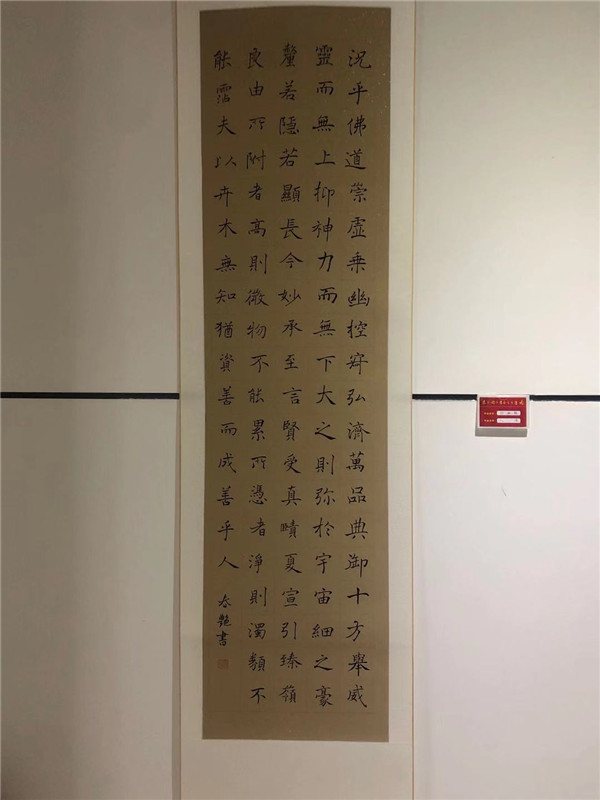 況乎佛道崇虛乘幽控寂弘濟萬品典御十方舉威
靈而無上抑神力而無下大之則弥於宇宙細之豪
釐若隱若顯長今妙承至言賢受真蹟夏宣引臻嶺
良由所附者高則微物不能累所憑者淨則濁類不
能霑夫以卉木無知猶資善而成善乎人 春艷書